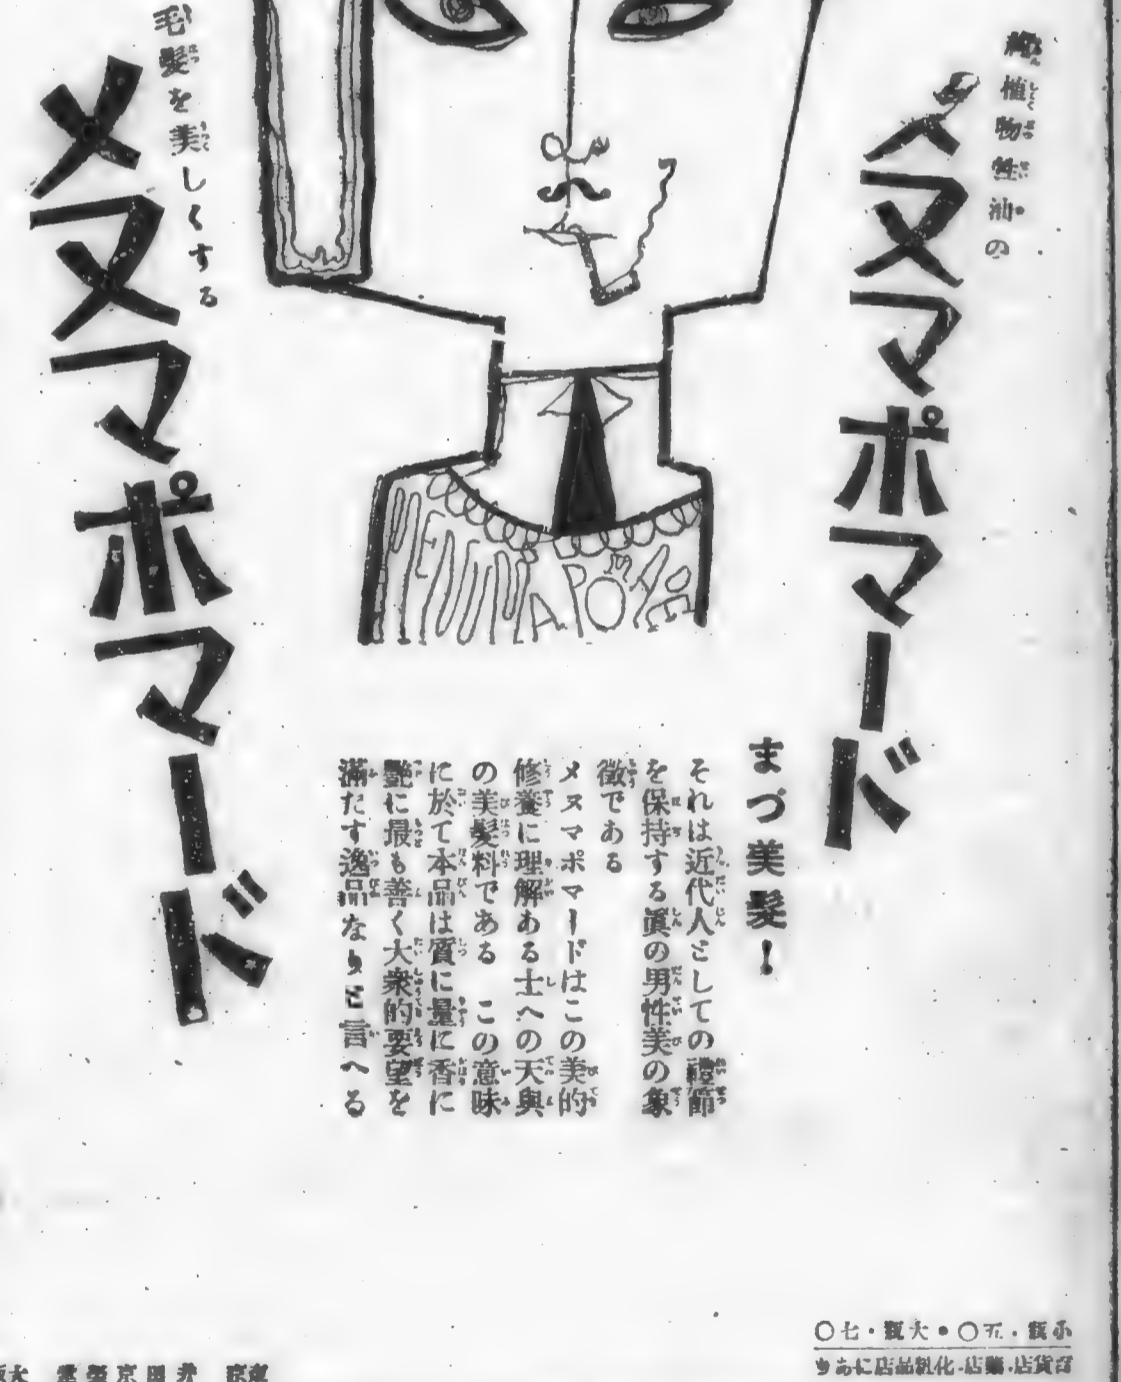 純植物性油の
メヌマポマード
まづ美髪!
それは近代人としての禮節
を保持する眞の男性美の象
徴である
メヌマポマードはこの美的
修養に理解ある士への天與
の美髪料である この意味
に於て本品は質に量に香に
艶に最も善く大衆的要望を
滿たす逸品なりと言へる
MENUMA POMADE
毛髪を美しくする
メヌマポマード
小瓶・五〇・大瓶・七〇
百貨店・藥店・化粧品店にあり